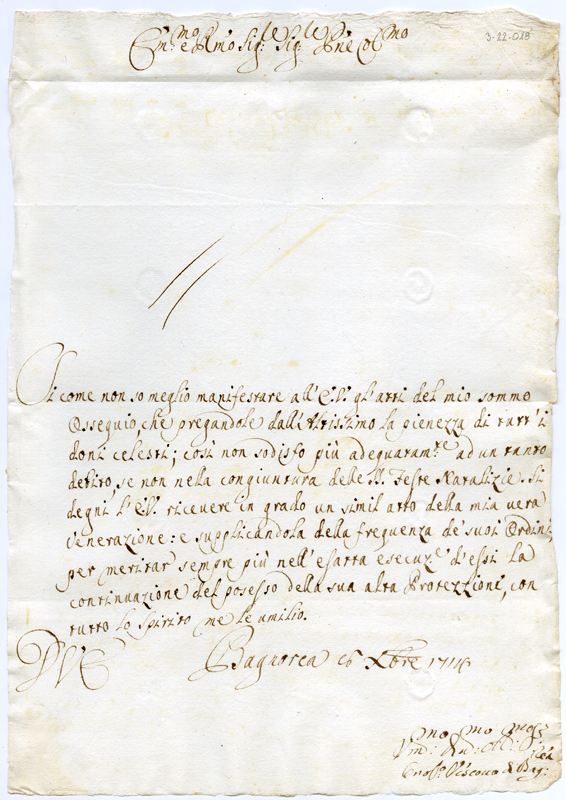 Em.mo e Rmo Sig.re Sig.re Pne Col.mo
3-22-018
Si come non so meglio manifestare all'E.V. gl'atti del mio sommo
Ossequio, che pregandole dall'Altissimo la pienezza di tutt'i
doni celesti; così non sodisfo più adequatam.te ad un tanto
debito, se non nella congiuntura delle SS. Feste Natalizie. Si
degni l'E.V. ricevere in grado un simil atto della mia vera
venerazione: e supplicandola della frequenza de' suoi Ordini,
per meritar sempre più nell'esatta esecuz.e d'essi la
continuazione del possesso della sua alta Protezzione, con
tutto lo spirito me le umilio.
DVE
Bagnorea Xbre 1714
Vm.o ed
Vescovo di Bag: